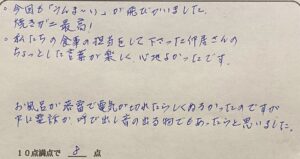 。今回も「うんま～い」が飛びかいました。
焼きガニ最高!
。私たちの食事の担当をして下さった仲居さんの
ちょっとした言葉が楽しく心地よかったです。
お風呂が深夜で電気が切れたらしくぬるかったのですが
下に電話か呼び出し音の出る物でもあったらと思いました。
10点満点で 8 点